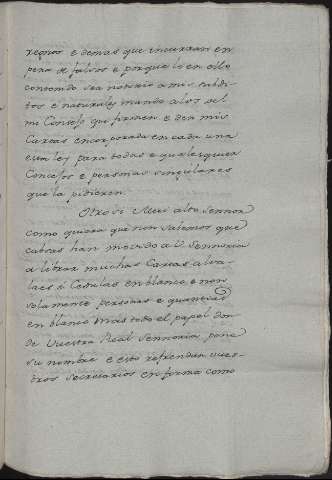 regnos e demas que incurran en
pena de falsos e porque lo en ello
contenido sea notorio a mis subdi-
tos e naturales mando a los del
mi Consejo que firmen e den mis
Cartas encorporada en cada una
esta ley para todos e qualesquier
Concejos e personas singulares
que la pidieren.
Otro si Mui alto Sennor
como quiera que non savemos que
cabsas han movido a V. Sennoria
a librar muchas Cartas alva-
laes i Cedulas en blanco e non
solamente personas e quantias
en blanco mas todo el papel don-
de Vuestra Real Sennoria pone
su nombre e esto refrendan vues-
tros Secretarios en forma como